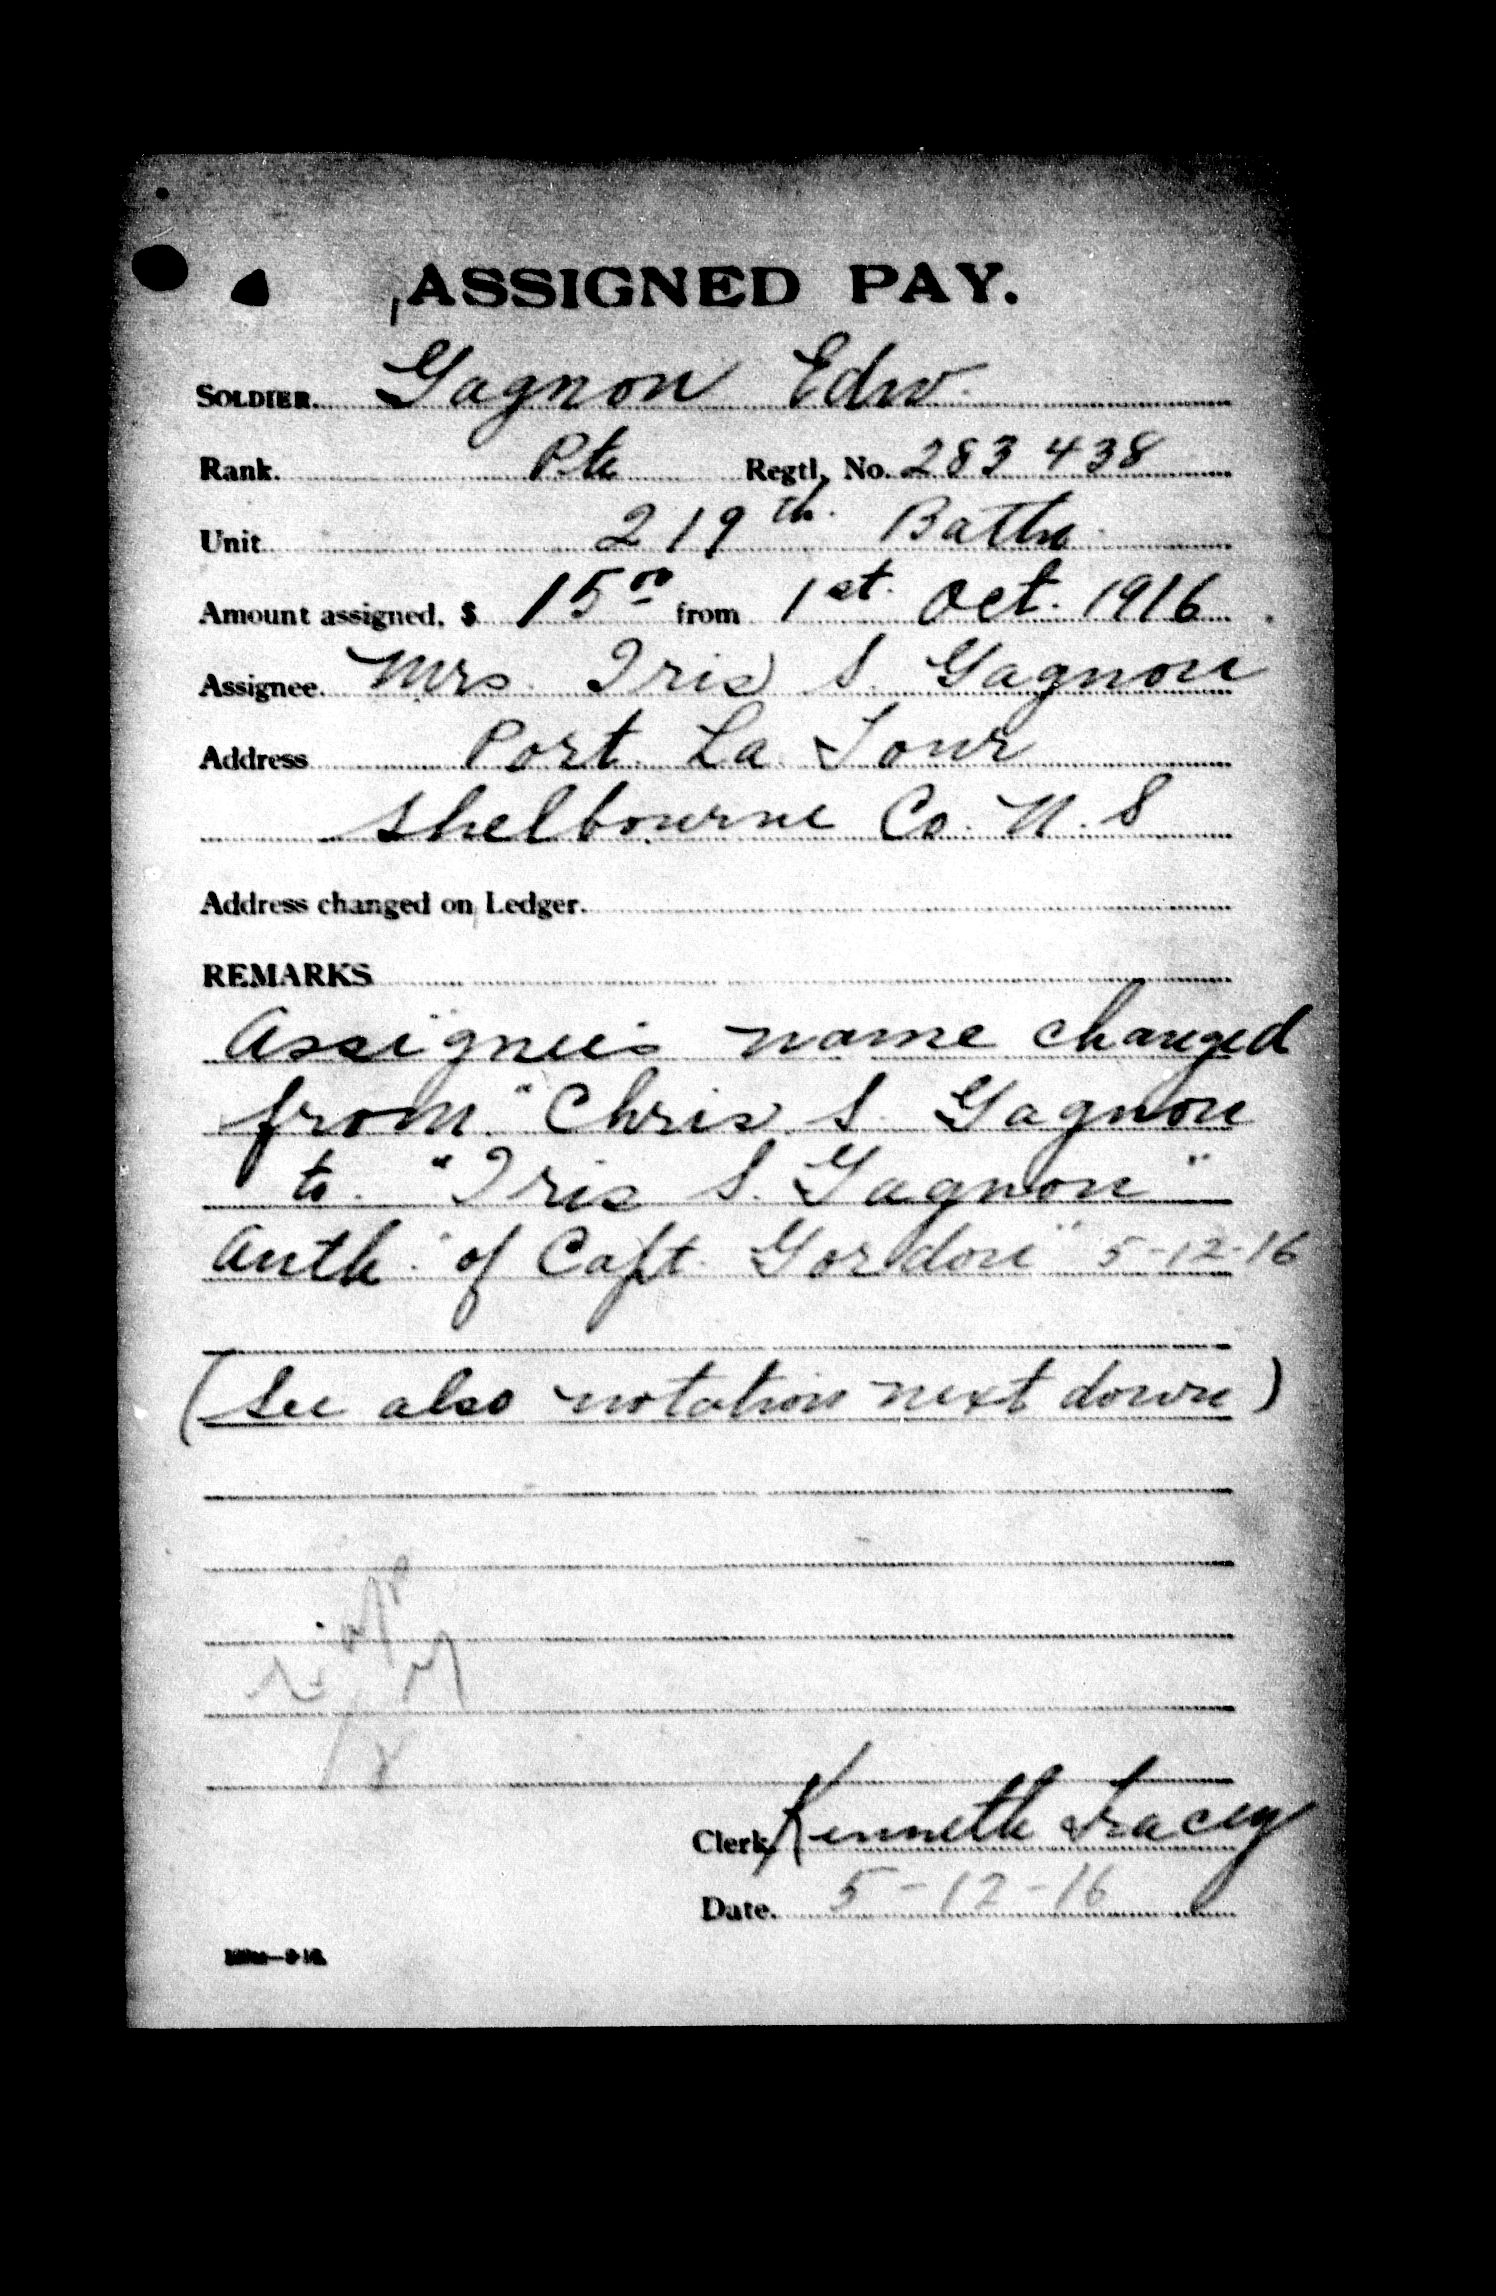 ASSIGNED PAY.
SOLDIER. Gagnon Edw.
Rank. Pte Regtl. No. 283 438
Unit 219th. Battn.
Amount assigned, $ 15 00 from 1st. Oct. 1916.
Assignee. Mrs. Iris S. Gagnon
Address Port La Tour
Shelbourne Co. N. S
Address changed on Ledger.
REMARKS
Assignee's name changed
from "Chris S. Gagnon
to. "Iris S. Gagnon"
Auth. "of Capt. Gordon" 5-12-16
(See also notation next down)
Clerk. Kenneth Tracey
Date. 5-12-16